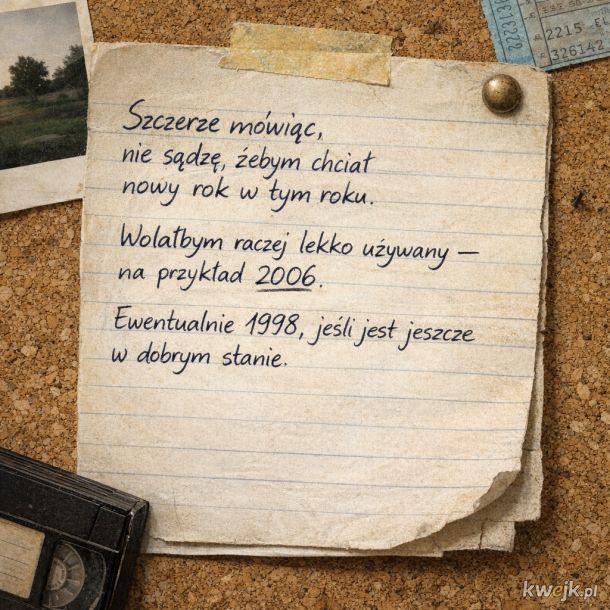 Szczerze mówiąc,
nie sądzę, żebym chciał
nowy rok w tym roku.
Wolałbym raczej lekko używany —
na przykład 2006.
Ewentualnie 1998, jeśli jest jeszcze
w dobrym stanie.
2215
326142
kwejk.pl